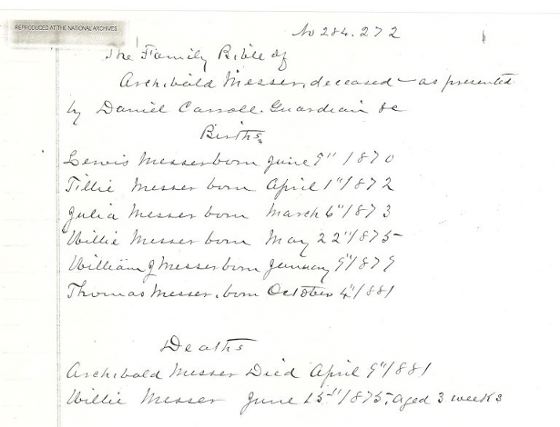 REPRODUCED AT THE NATIONAL ARCHIVES
No 284.272
The Family Bible of
Archibald Messer, deceased – as presented
by Daniel Carroll. Guardian &c
Births
Lewis Messer born June 9" 1870
Tillie Messer born April 1" 1872
Julia Messer born March 6" 1873
Willie Messer born May 22" 1875
William J Messer born January 9" 1879
Thomas Messer, born October 4" 1881
Deaths
Archibald Messer Died April 9" 1881
Willie Messer June 15" 1875, aged 3 weeks